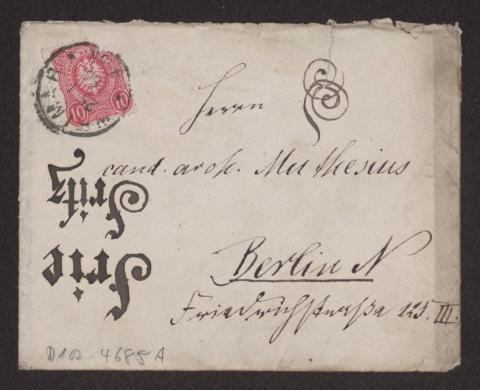 Herrn
cand. arch. Muthesius
Berlin N
Friedrichstraße 125. III.
Fritz
10 10
D102-4685 A